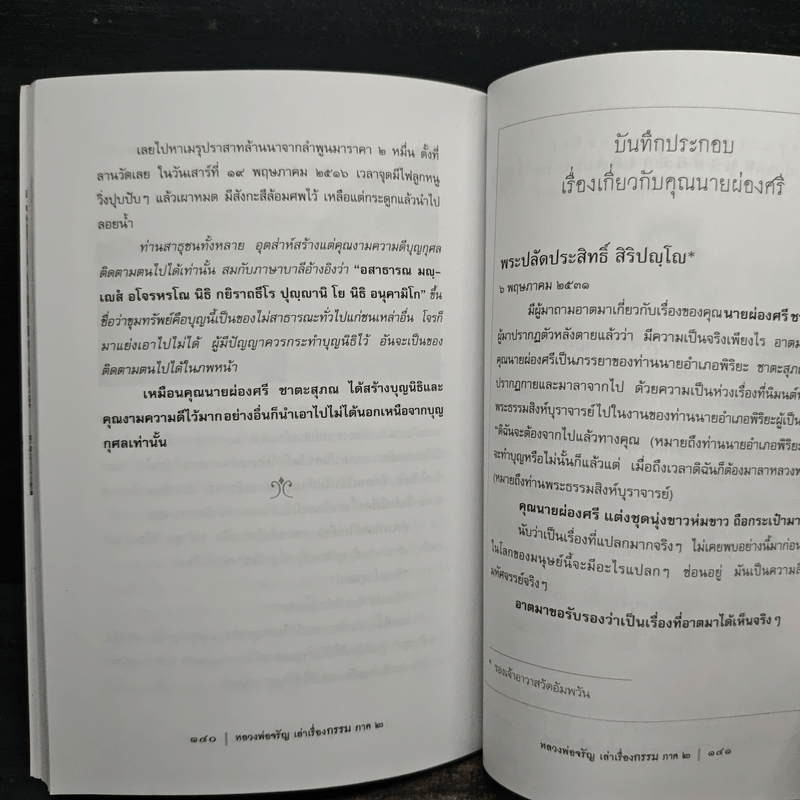 เลยไปหาเมรุปราสาทล้านนาจากลำพูนมาราคา ๒ หมื่น ตั้งที่
ลานวัดเลย ในวันเสาร์ที่ ๑๙ พฤษภาคม ๒๕๑๖ เวลาจุดมีไฟลูกหนู
วิ่งปุบปับๆ แล้วเผาหมด มีสังกะสีล้อมศพไว้ เหลือแต่กระดูกแล้วนำไป
ลอยน้ำ
ท่านสาธุชนทั้งหลาย อุตส่าห์สร้างแต่คุณงามความดีบุญกุศล
ติดตามตนไปได้เท่านั้น สมกับภาษาบาลีอ้างอิงว่า “อสาธารณ มญฺ-
เญสํ อโจรหรโณ นิธิ กยิราถธีโร ปุญฺญานิ โย นิธิ อนุคามิโก” ขึ้น
ชื่อว่าขุมทรัพย์คือบุญนี้เป็นของไม่สาธารณะทั่วไปแก่ชนเหล่าอื่น โจรก็
มาแย่งเอาไปไม่ได้ ผู้มีปัญญาควรกระทำบุญนิธิไว้ อันจะเป็นของ
ติดตามตนไปได้ในภพหน้า
เหมือนคุณนายผ่องศรี ชาตะสุภณ ได้สร้างบุญนิธิและ
คุณงามความดีไว้มากอย่างอื่นก็นำเอาไปไม่ได้นอกเหนือจากบุญ
กุศลเท่านั้น
๑๔๐ | หลวงพ่อจรัญ เล่าเรื่องกรรม ภาค ๒
บันทึกประกอบ
เรื่องเกี่ยวกับคุณนายผ่องศรี
พระปลัดประสิทธิ์ สิริปญฺโญ*
๖ พฤษภาคม ๒๕๓๑
มีผู้มาถามอาตมาเกี่ยวกับเรื่องของคุณนายผ่องศรี
ผู้มาปรากฏตัวหลังตายแล้วว่า มีความเป็นจริงเพียงไร
คุณนายผ่องศรีเป็นภรรยาของท่านนายอำเภอพิริยะ
ปรากฏกายและมาลาจากไป ด้วยความเป็นห่วงเรื่องที่นิมนต์
พระธรรมสิงห์บุราจารย์ไปในงานของท่านนายอำเภอพิริยะผู้เป็น
“ดิฉันจะต้องจากไปแล้วทางคุณ (หมายถึงท่านนายอำเภอพิริยะ
จะทำบุญหรือไม่นั้นก็แล้วแต่ เมื่อถึงเวลาดิฉันก็ต้องมาลาหลวงพ่อ
(หมายถึงท่านพระธรรมสิงห์บุราจารย์)
คุณนายผ่องศรี แต่งชุดนุ่งขาวห่มขาว ถือกระเป๋ามา
นับว่าเป็นเรื่องที่แปลกมากจริงๆ ไม่เคยพบอย่างนี้มาก่อน
ในโลกของมนุษย์นี้จะมีอะไรแปลกๆ ซ่อนอยู่ มันเป็นความ
มหัศจรรย์จริงๆ
อาตมาขอรับรองว่าเป็นเรื่องที่อาตมาได้เห็นจริงๆ
* รองเจ้าอาวาสวัดอัมพวัน
หลวงพ่อจรัญ เล่าเรื่องกรรม ภาค ๒ | ๑๔๑